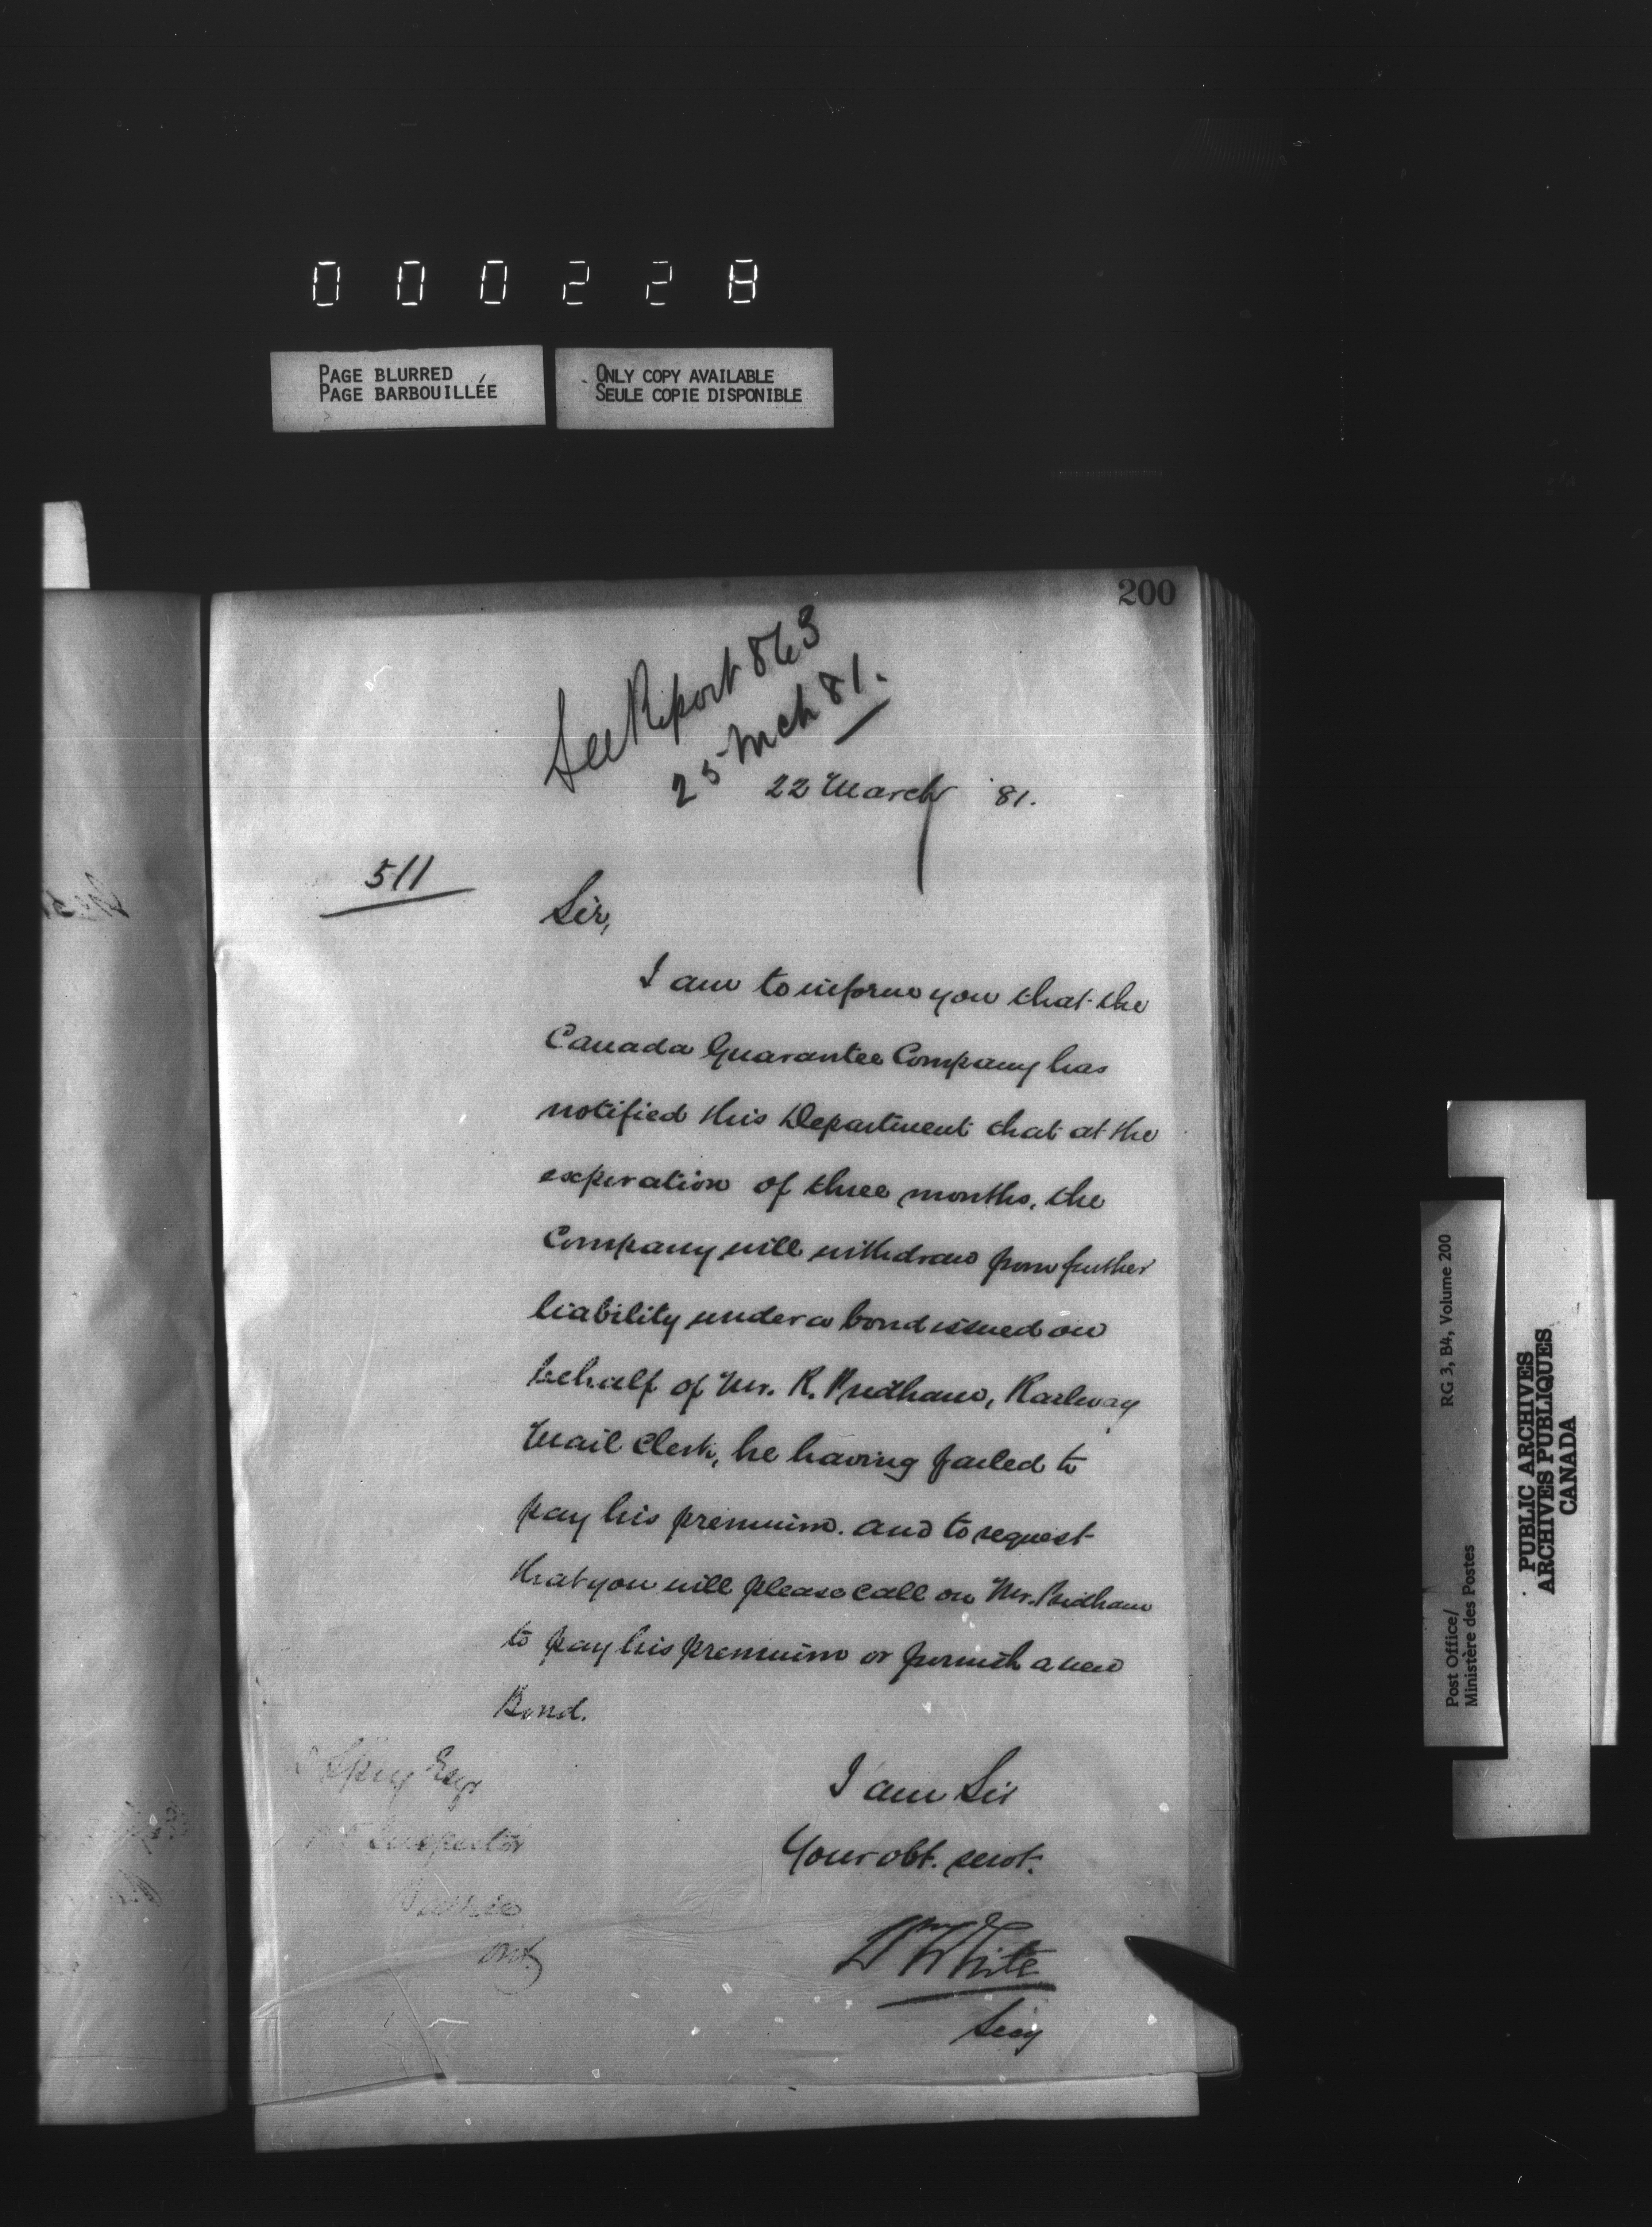 000228
PAGE BLURRED
PAGE BARBOUILLÉE
ONLY COPY AVAILABLE
SEULE COPIE DISPONIBLE
200
See Report 863
25 Mch 81.
22 March '81.
511
Sir,
I am to inform you that the
Canada Guarantee Company has
notified this Department that at the
expiration of three months, the
Company will withdraw from further
liability under a bond issued on
behalf of Mr. R. Pridham, Railway
Mail Clerk, he having failed to
pay his premium. and to request
that you will please call on Mr. Pridham
to pay his premium or furnish a new
Bond.
Spry Esqr
Inspector
Barrie
Ont.
I am Sir
Your obt. servt.
Wm White
Secy
Post Office/
Ministère des Postes
RG 3, B4, Volume 200
PUBLIC ARCHIVES
ARCHIVES PUBLIQUES
CANADA